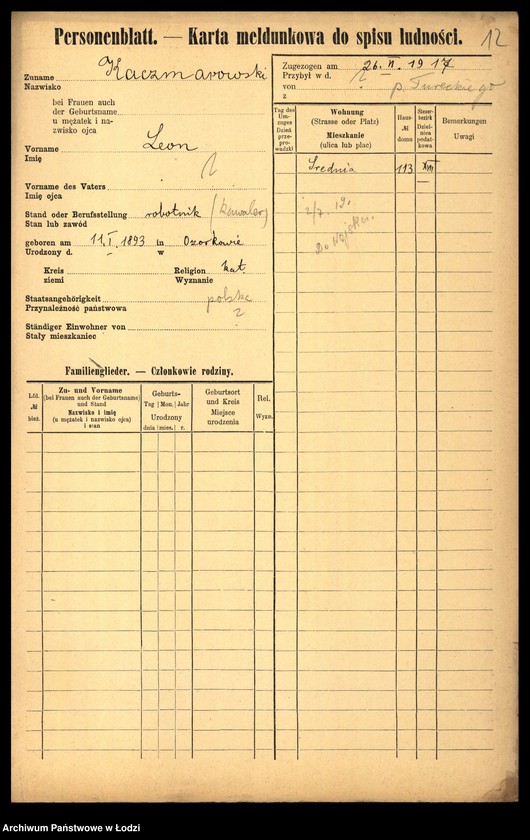 Personenblatt. — Karta meldunkowa do spisu ludności.
12
Zuname Kaczmarowski
Nazwisko
bei Frauen auch
der Geburtsname
u mężatek i na-
zwisko ojca
Vorname Leon
Imię
Vorname des Vaters
Imię ojca
Stand oder Berufsstellung robotnik (kawaler)
Stan lub zawód
geboren am 11.I.1893 in Ozorkowie
Urodzony d. w
Kreis Religion kat.
ziemi Wyznanie
Staatsangehörigkeit polska
Przynależność państwowa
Ständiger Einwohner von
Stały mieszkaniec
Familienglieder. — Członkowie rodziny.
Lfd. № bież.
Zu- und Vorname
(bei Frauen auch der Geburtsname)
und Stand
Nazwisko i imię
(u mężatek i nazwisko ojca)
i stan
Geburts-
Tag Mon. Jahr
Urodzony
dnia mies. r.
Geburtsort
und Kreis
Miejsce
urodzenia
Rel.
Wyzn.
Zugezogen am 26. VI. 1917
Przybył w d.
von p. Tureckiego
z
Tag des Um-zuges
Dzień prze-pro-wadzki
Wohnung
(Strasse oder Platz)
Mieszkanie
(ulica lub plac)
Haus-№ domu
Steuer-bezirk
Dziel-nica podat-kowa
Bemerkungen
Uwagi
Średnia 113 XVII
2/7. 19.
Do wojska.
Archiwum Państwowe w Łodzi